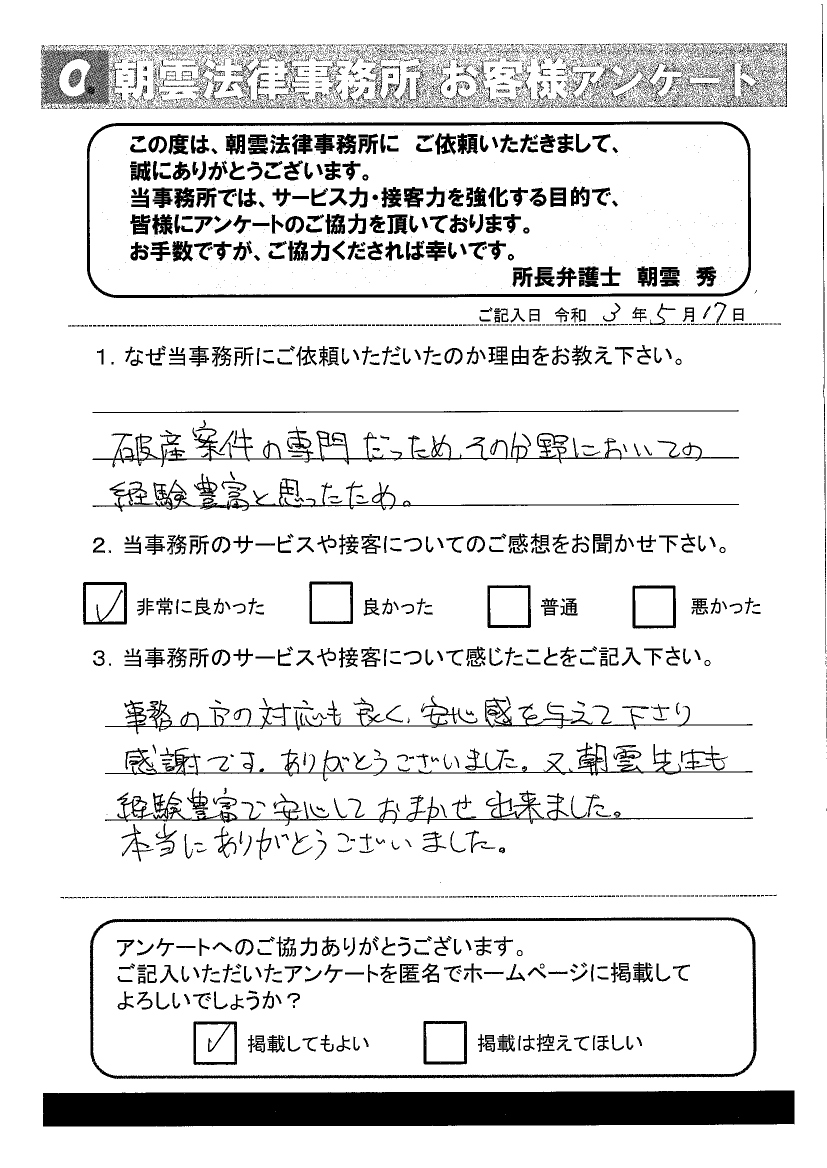 a. 朝雲法律事務所 お客様アンケート
この度は、朝雲法律事務所に ご依頼いただきまして、
誠にありがとうございます。
当事務所では、サービス力・接客力を強化する目的で、
皆様にアンケートのご協力を頂いております。
お手数ですが、ご協力くだされば幸いです。
所長弁護士 朝雲 秀
ご記入日 令和 3 年 5 月 17 日
1. なぜ当事務所にご依頼いただいたのか理由をお教え下さい。
破産案件の専門だっため、その分野においての
経験豊富と思ったため。
2. 当事務所のサービスや接客についてのご感想をお聞かせ下さい。
✓ 非常に良かった 良かった 普通 悪かった
3. 当事務所のサービスや接客について感じたことをご記入下さい。
事務の方の対応も良く、安心感を与えて下さり
感謝です。ありがとうございました。又、朝雲先生も
経験豊富で安心しておまかせ出来ました。
本当にありがとうございました。
アンケートへのご協力ありがとうございます。
ご記入いただいたアンケートを匿名でホームページに掲載して
よろしいでしょうか？
✓ 掲載してもよい 掲載は控えてほしい